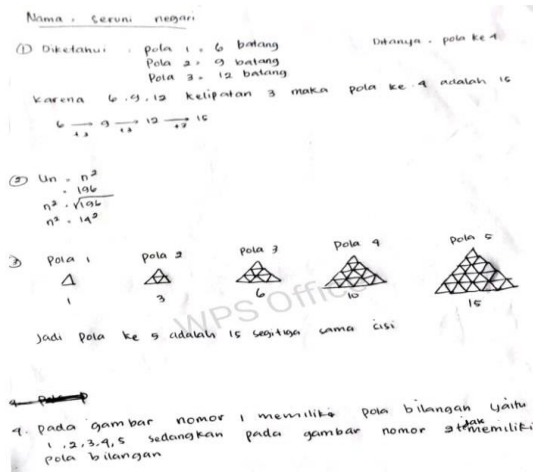 Nama : Seruni negari
① Diketahui : pola 1 = 6 batang Ditanya = pola ke 4
Pola 2 = 9 batang
Pola 3 = 12 batang
Karena 6, 9, 12 kelipatan 3 maka pola ke 4 adalah 15
6 → 9 → 12 → 15
+3 +3 +3
② Un = n²
= 196
n² = √196
n² = 14²
③ Pola 1 Pola 2 Pola 3 Pola 4 Pola 5
1 3 6 10 15
WPS Office
Jadi Pola ke 5 adalah 15 segitiga sama cisi
4. pada gambar nomor 1 memiliki pola bilangan yaitu
1, 2, 3, 4, 5 sedangkan pada gambar nomor 2 tdak memiliki
pola bilangan